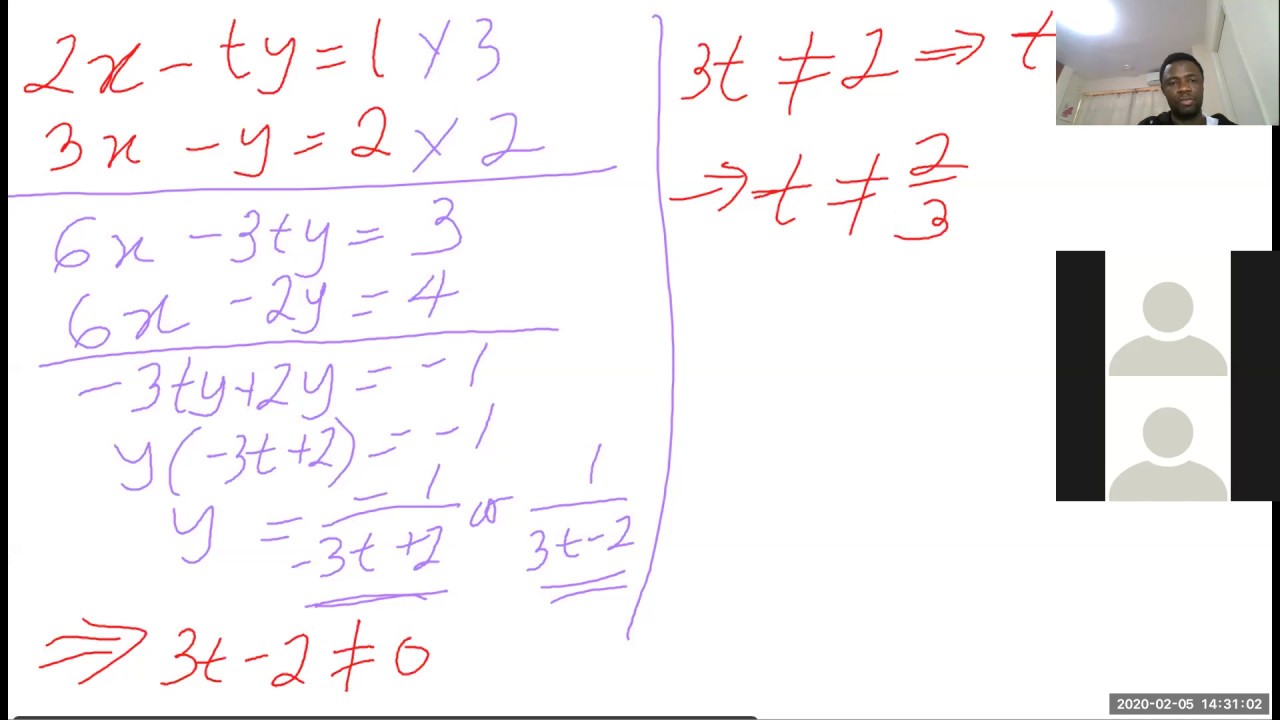 2x - ty = 1 × 3
3x - y = 2 × 2
6x - 3ty = 3
6x - 2y = 4
-3ty + 2y = -1
y(-3t + 2) = -1
y = -1/-3t + 2 or 1/3t - 2
⇒ 3t - 2 ≠ 0
3t ≠ 2 ⇒ t
⇒ t ≠ 2/3
2020-02-05 14:31:02